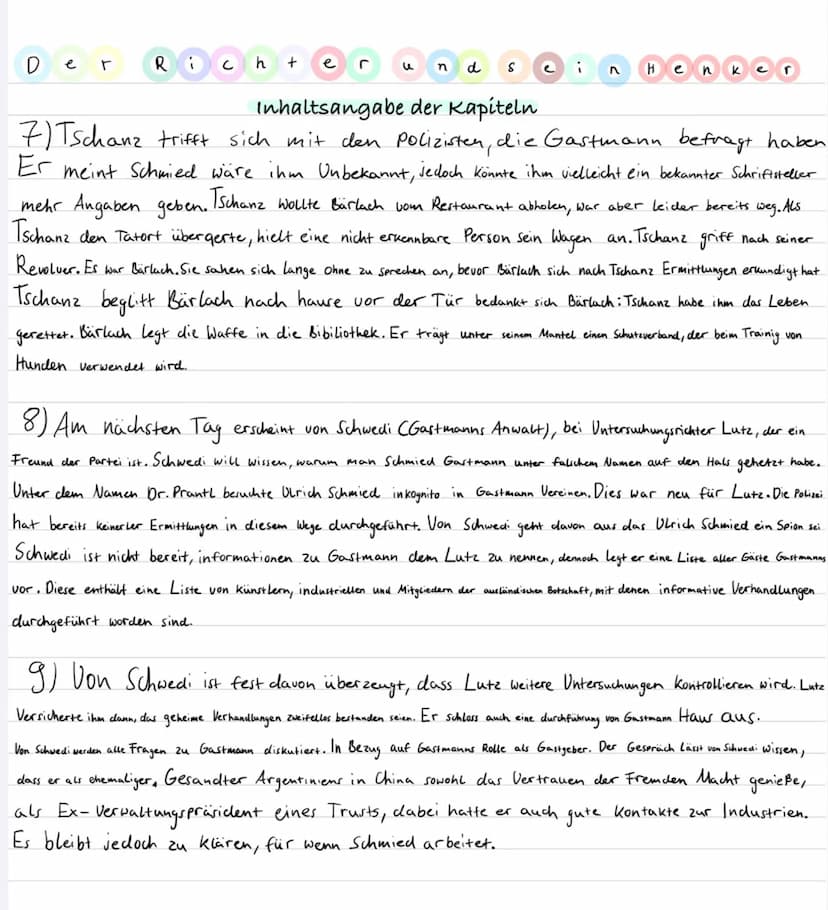 Der Richter und sein Henker
Inhaltsangabe der Kapiteln
7) Tschanz trifft sich mit den Polizisten, die Gastmann befragt haben
Er meint Schmied wäre ihm Unbekannt, jedoch könnte ihm vielleicht ein bekannter Schriftsteller
mehr Angaben geben. Tschanz wollte Bärlach vom Restaurant abholen, war aber leider bereits weg. Als
Tschanz den Tatort übergerte, hielt eine nicht erkennbare Person sein Wagen an. Tschanz griff nach seiner
Revolver. Es war Bärlach. Sie sahen sich lange ohne zu sprechen an, bevor Bärlach sich nach Tschanz Ermittlungen erkundigt hat
Tschanz beglitt Bärlach nach hause vor der Tür bedankt sich Bärlach: Tschanz habe ihm das Leben
gerettet. Bärlach legt die Waffe in die Bibiliothek. Er trägt unter seinem Mantel einen Schutzverband, der beim Trainig von
Hunden verwendet wird.
8) Am nächsten Tag erscheint von Schwedi (Gastmanns Anwalt), bei Untersuchungsrichter Lutz, der ein
Freund der Partei ist. Schwedi will wissen, warum man Schmied Gastmann unter falschem Namen auf den Hals gehetzt habe.
Unter dem Namen Dr. Prantl besuchte Ulrich Schmied inkognito in Gastmann Vereinen. Dies war neu für Lutz. Die Polizei
hat bereits keinerler Ermittlungen in diesem Wege durchgeführt. Von Schwedi geht davon aus das Ulrich Schmied ein Spion sei
Schwedi ist nicht bereit, informationen zu Gastmann dem Lutz zu nennen, dennoch legt er eine Liste aller Gäste Gastmanns
vor. Diese enthält eine Liste von Künstlern, industriellen und Mitgliedern der ausländischen Botschaft, mit denen informative Verhandlungen
durchgeführt worden sind.
9) Von Schwedi ist fest davon überzeugt, dass Lutz weitere Untersuchungen Kontrollieren wird. Lutz
Versicherte ihm dann, das geheime Verhandlungen zweifellos bestanden seien. Er schloss auch eine durchführung von Gastmann Haus aus.
Von Schwedi werden alle Fragen zu Gastmann diskutiert. In Bezug auf Gastmanns Rolle als Gastgeber. Der Gespräch lässt von Schwedi wissen,
dass er als ehemaliger, Gesandter Argentiniens in China sowohl das Vertrauen der Fremden Macht genieße,
als Ex-Verwaltungspräsident eines Trusts, dabei hatte er auch gute Kontakte zur Industrien.
Es bleibt jedoch zu klären, für wenn Schmied arbeitet.